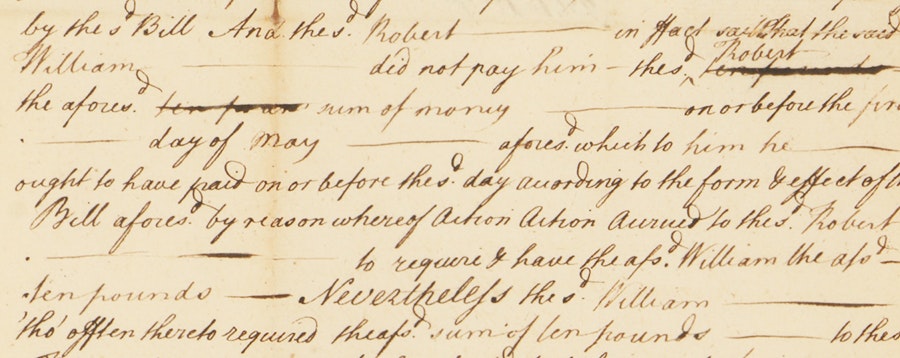 by the s.d Bill And the s.d Robert in ffact saith that the said
William did not pay him - the s.d Robert ten pounds
the afores.d ten poun sum of money on or before the
day of May afores.d which to him he
ought to have paid on or before the s.d day according to the form & effect of
Bill afores.d by reason whereof Action Action Accrued to the s.d Robert
to require & have the afs.d William the afs.d
ten pounds Nevertheless the s.d William
tho' offten thereto required the afs.d sum of ten pounds to the